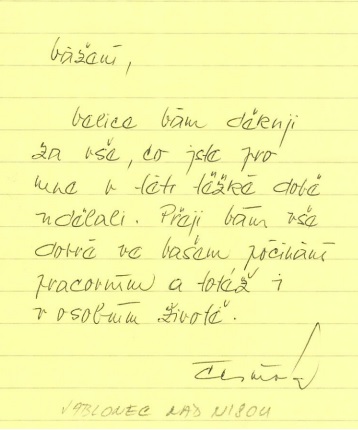 Vážení,
velice Vám děkuji
za vše, co jste pro
mne v této těžké době
udělali. Přeji Vám vše
dobré ve Vašem počínání
pracovním a totéž i
v osobním životě.
JABLONEC NAD NISOU